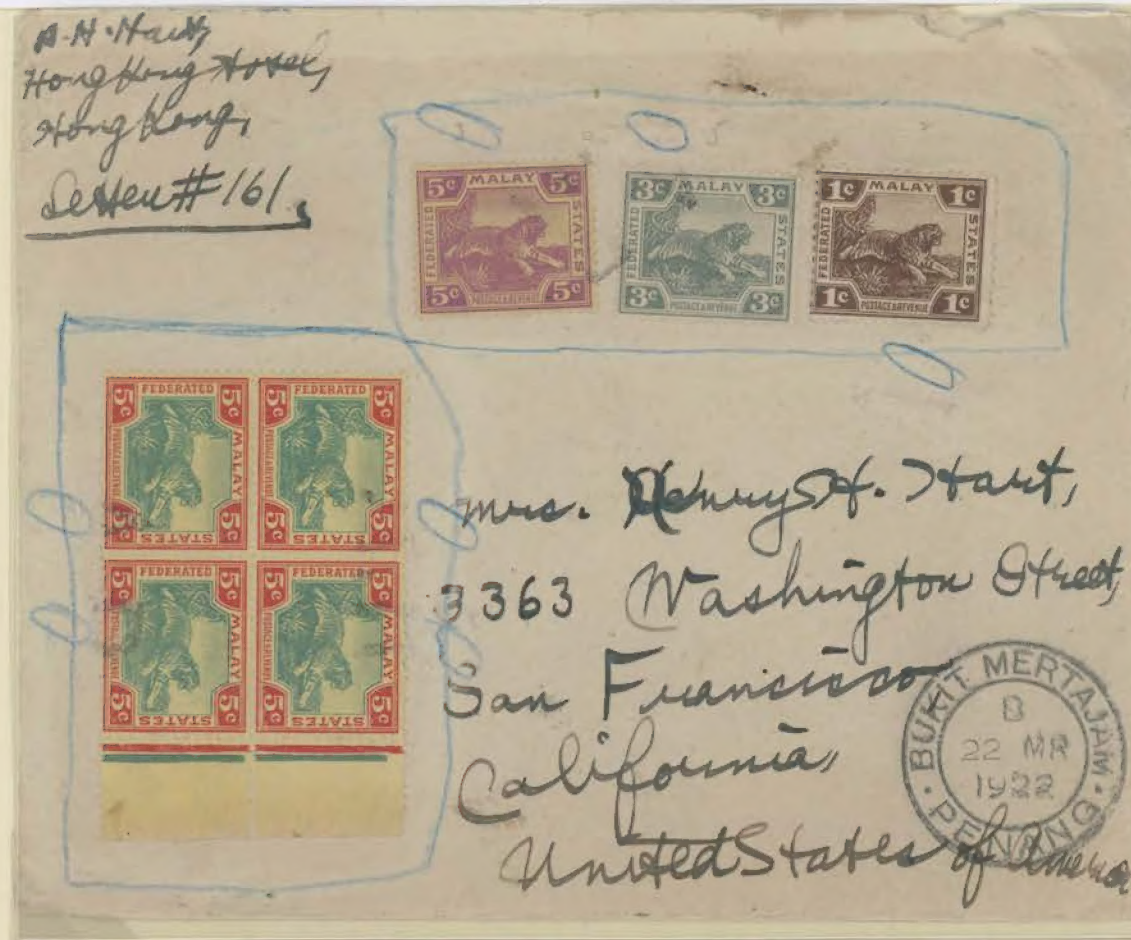 Hong Kong Hotel,
Hong Kong,
Letter #161.
5c MALAY 5c
FEDERATED
STATES
POSTAGE & REVENUE
5c 5c
3c MALAY 3c
FEDERATED
STATES
POSTAGE & REVENUE
3c 3c
1c MALAY 1c
FEDERATED
STATES
POSTAGE & REVENUE
1c 1c
5c FEDERATED 5c
MALAY
POSTAGE & REVENUE
5c STATES 5c
5c FEDERATED 5c
MALAY
POSTAGE & REVENUE
5c STATES 5c
5c FEDERATED 5c
MALAY
POSTAGE & REVENUE
5c STATES 5c
5c FEDERATED 5c
MALAY
POSTAGE & REVENUE
5c STATES 5c
Mrs. Henry H. Hart,
3363 Washington Street,
San Francisco
California,
United States of America
BUKIT MERTAJAM
B
22 MR
1922
PENANG